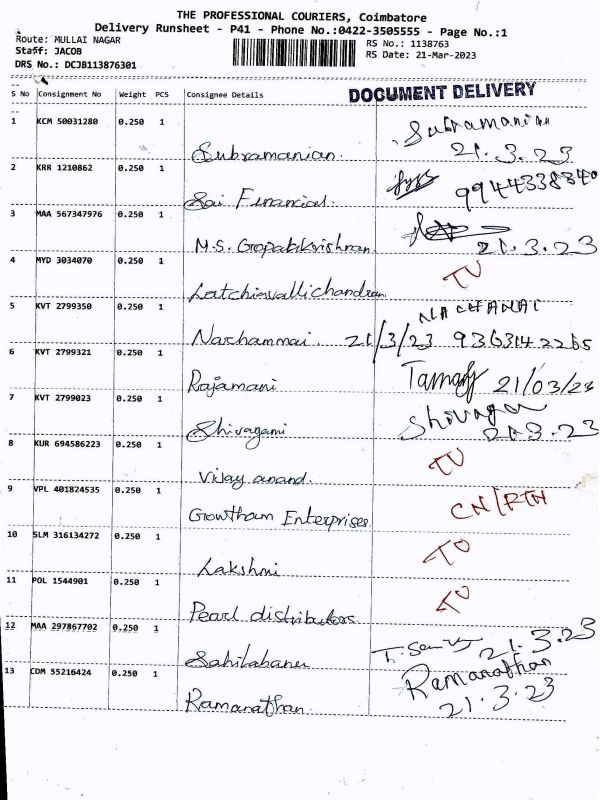 THE PROFESSIONAL COURIERS, Coimbatore
Delivery Runsheet - P41 - Phone No.:0422-3505555 - Page No.:1
Route: MULLAI NAGAR
Staff: JACOB
DRS No.: DCJB113876301
RS No.: 1138763
RS Date: 21-Mar-2023
S No Consignment No Weight PCS Consignee Details DOCUMENT DELIVERY
1 KCM 50031280 0.250 1
Subramanian. Subramanian
21.3.23
2 KRR 1210862 0.250 1
Sai Financial. 9944338340
3 MAA 567347976 0.250 1
M.S. Gopalakrishnan 21.3.23
4 MYD 3034070 0.250 1
Latchinvallichandran
5 KVT 2799350 0.250 1
NACHAMAI
Nachammai. 21/3/23 9363142265
6 KVT 2799321 0.250 1
Rajamani 21/03/23
7 KVT 2799023 0.250 1
Shivagami 21.3.23
8 KUR 694586223 0.250 1
Vijay anand.
9 VPL 401824535 0.250 1
Growtham Enterprises CN/RTN
10 SLM 316134272 0.250 1
Lakshmi
11 POL 1544901 0.250 1
Pearl distributors
12 MAA 297867702 0.250 1
Sahilabanu 21.3.23
13 CDM 55216424 0.250 1
Ramanathan. Ramanathan
21.3.23